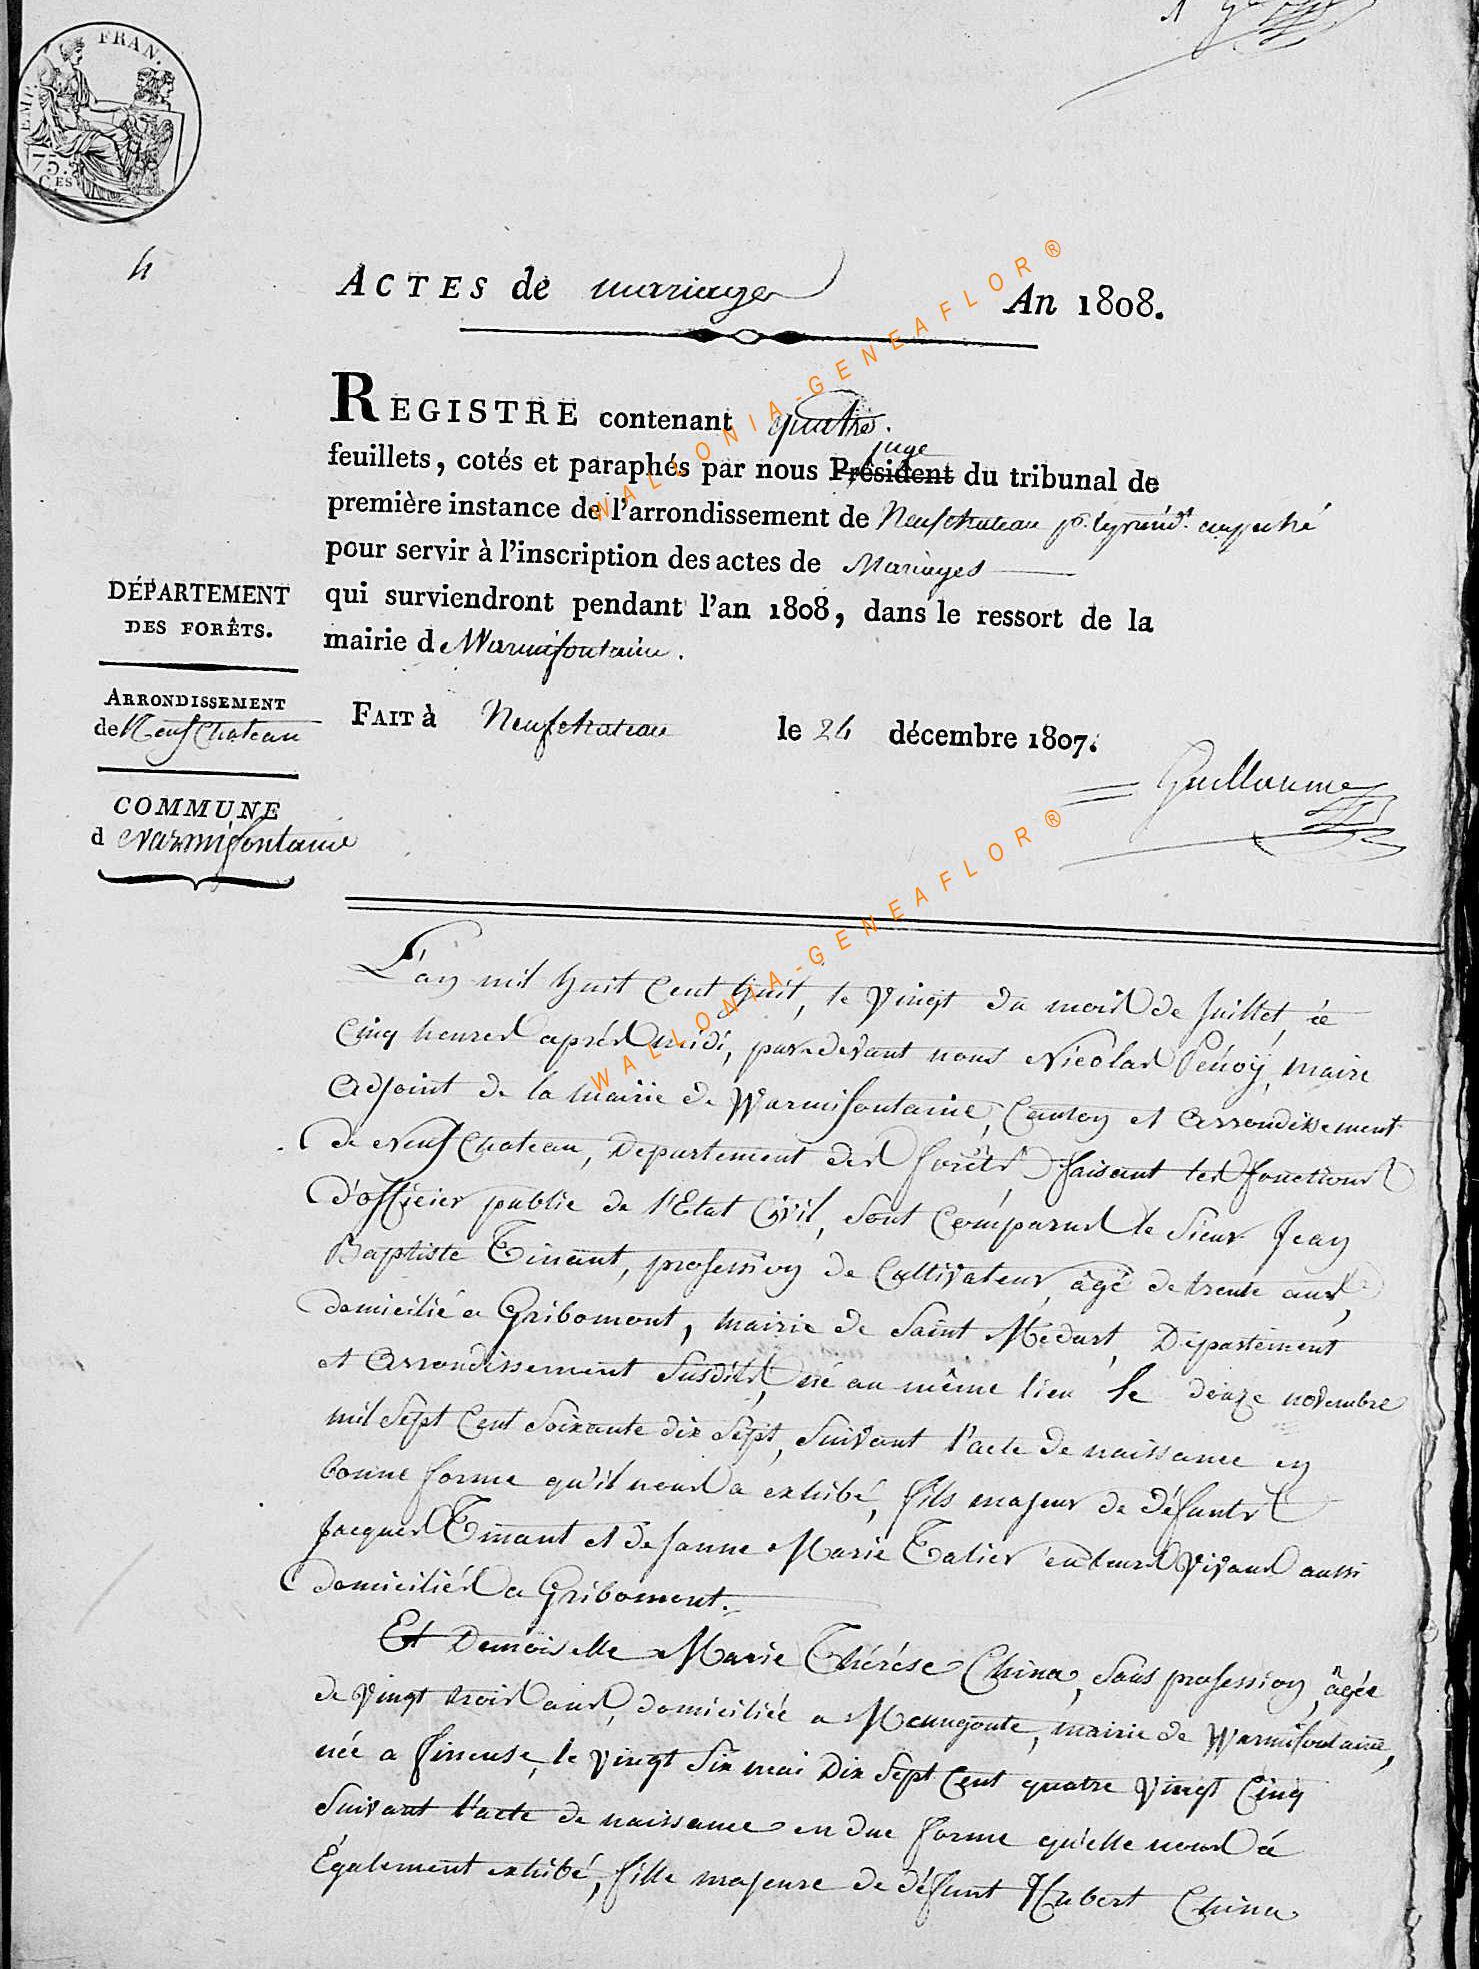 EMP. FRAN.
75. CES
4
ACTES de mariage An 1808.
REGISTRE contenant quatre.
feuillets, cotés et paraphés par nous Président juge du tribunal de
première instance de l'arrondissement de Neufchateau empeché
pour servir à l'inscription des actes de Mariages
qui surviendront pendant l'an 1808, dans le ressort de la
mairie de Warmifontaine.
DÉPARTEMENT
DES FORÊTS.
ARRONDISSEMENT
de Neufchateau
COMMUNE
d Warmifontaine
FAIT à Neufchateau le 24 décembre 1807.
Guillaume
L'an mil huit Cent huit, le vingt du mois de Juillet, à
Cinq heures après midi, pardevant nous Nicolas Penoÿ, maire
adjoint de la mairie de Warmifontaine, Canton et arrondissement
de Neufchateau, Departement des forêts, faisant les fonctions
d'officier public de l'Etat Civil, sont comparus le sieur Jean
Baptiste Tinant, profession de Cultivateur, âgé de trente ans,
domicilié a Gribomont, mairie de Saint Médart, Département
et arrondissement susdits, né au même lieu le douze novembre
mil sept Cent soixante dix sept, suivant l'acte de naissance en
bonne forme qu'il nous a exhibé, fils majeur de défunts
Jacques Tinant et de Janne Marie Talier en leurs vivans aussi
domiciliés a Gribomont.
Et Demoiselle Marie Thérése China, sans profession, âgée
de vingt trois ans, domiciliée a Menugoute, mairie de Warmifontaine,
née a fineuse, le vingt six mai dix sept Cent quatre vingt Cinq
suivant l'acte de naissance en due forme qu'elle nous à
également exhibé, fille majeure de défunt Hubert China
WALLONIA-GENEAFLOR®
WALLONIA-GENEAFLOR®